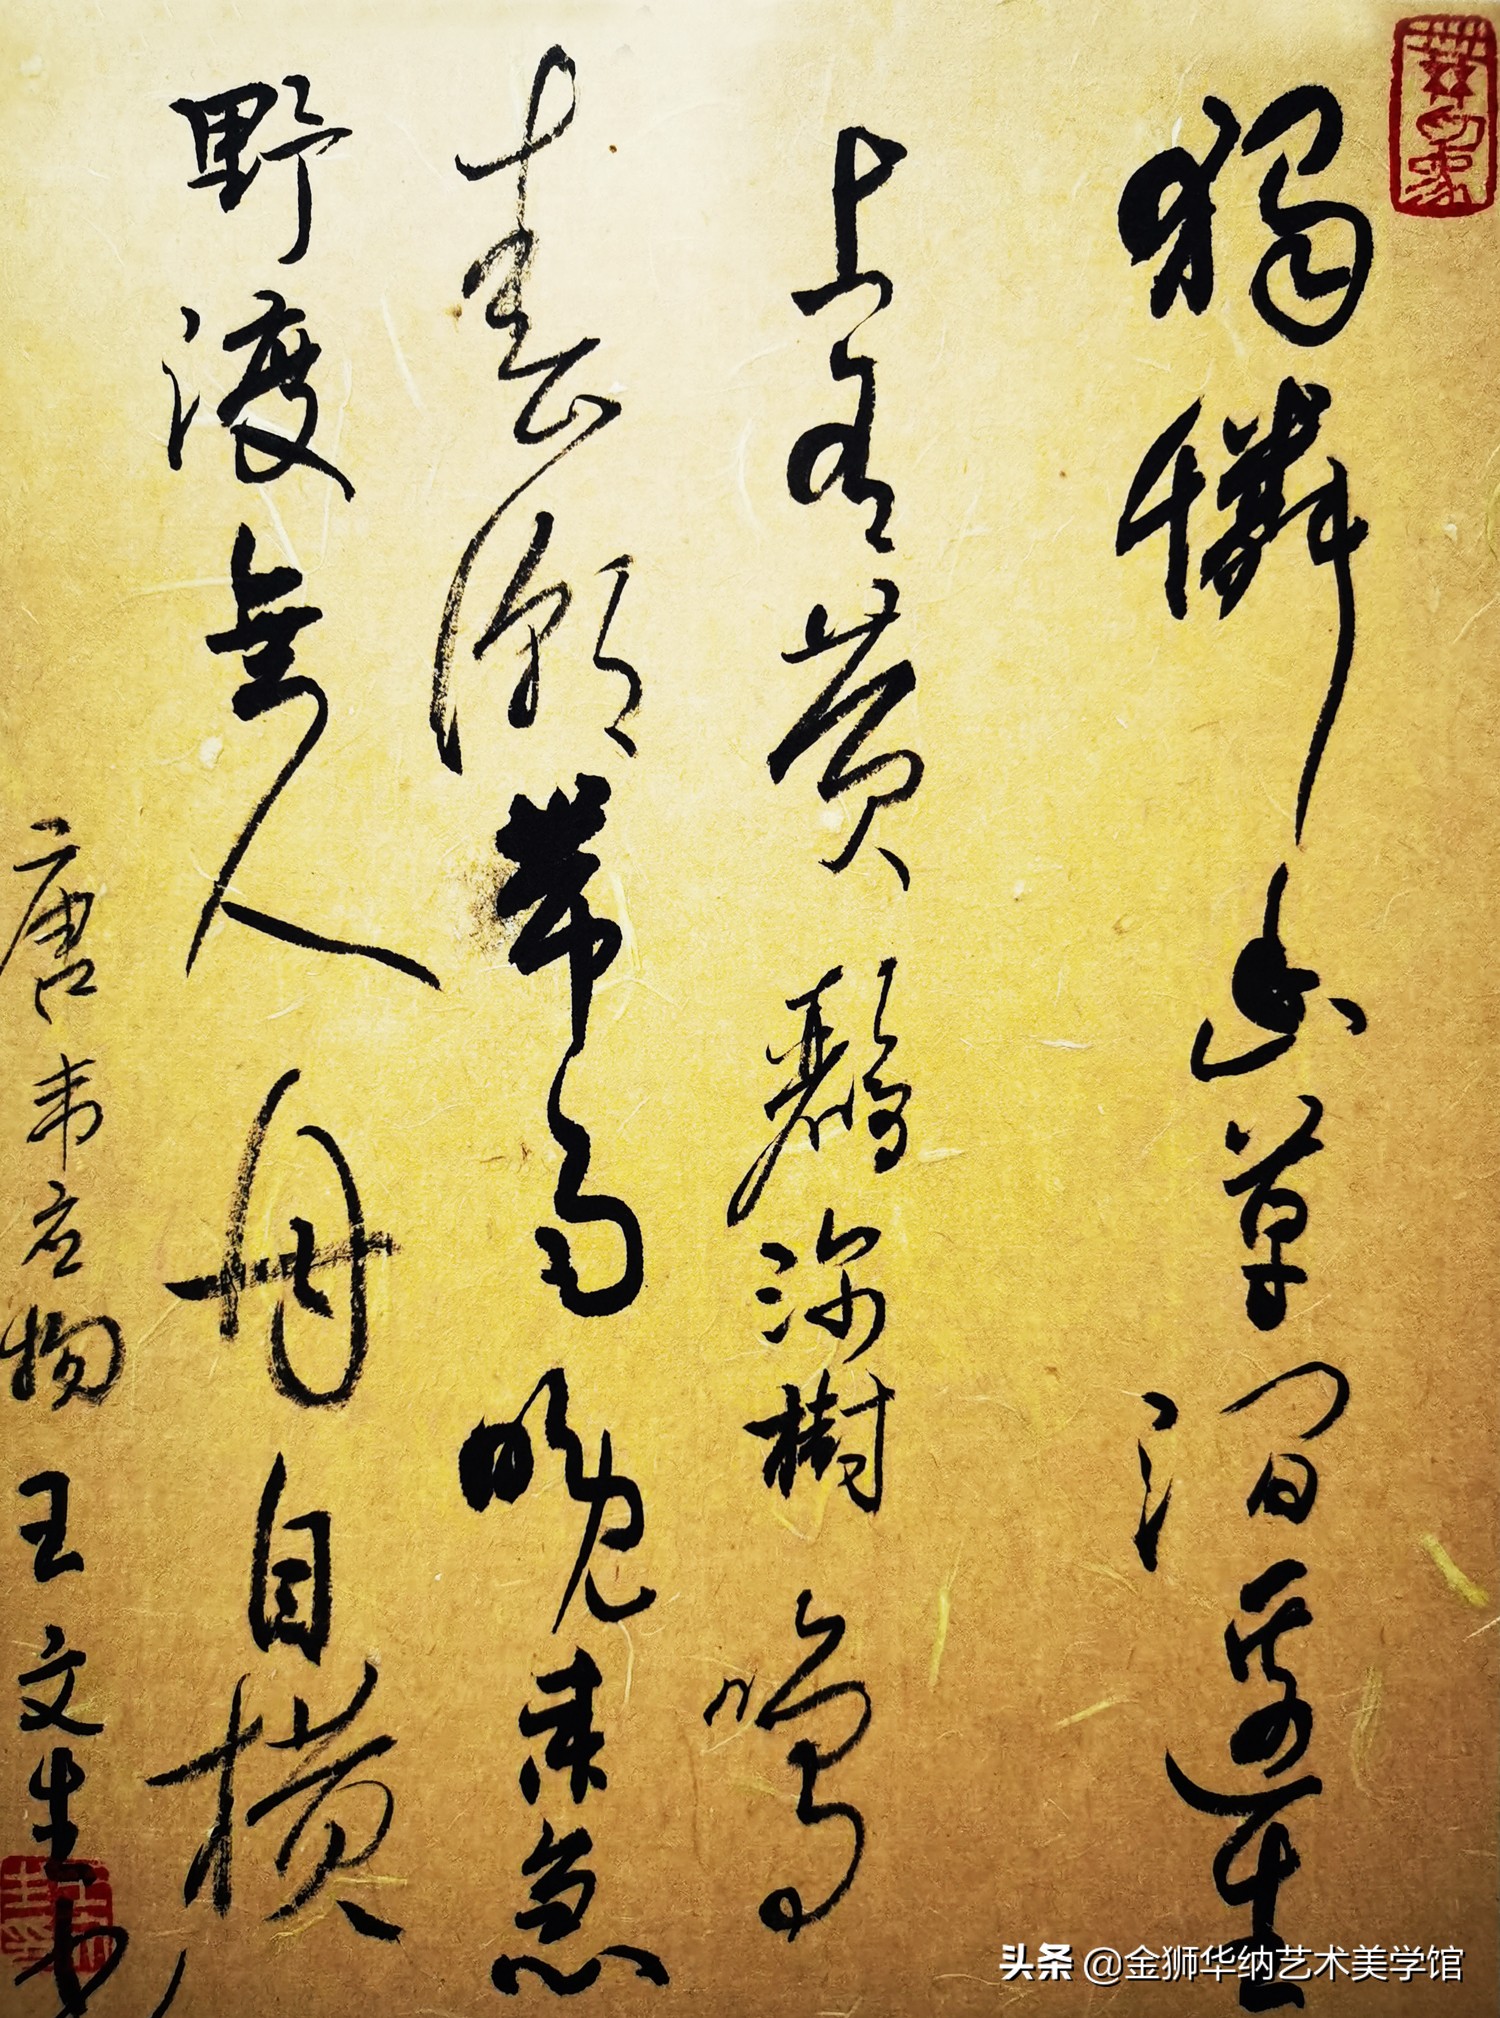 獨憐幽草澗邊生
上有黄鸝深樹鳴
春潮帶雨晚來急
野渡無人舟自横
唐韦应物 王文生书
头条 @金狮华纳艺术美学馆